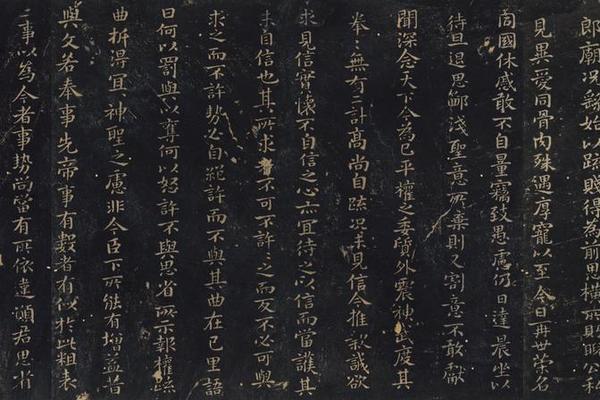 郎廟況繇始以疏賤得為前恩橫所盻睨公私
見異愛同骨肉殊遇厚寵以至今日再世榮名
同國休慼敢不自量竊致愚慮仍日達晨坐以
待旦退思鄙淺聖意所棄則又割意不敢獻
聞深念天下今為已平權之委質外震神武度其
拳々無有二計高尚自疏況未見信今推款誠欲
求見信實懷不自信之心亦宜待之以信而當護其
未自信也其所求者不可不許々之而反不必可與
求之而不許勢必自絕許而不與其曲在己里語
曰何以罰與以奪何以怒許不與思省所示報權疏
曲折得宜神聖之慮非今臣下所能有增益昔
與文若奉事先帝事有數者有似於此粗表
二事以為今者事勢尚當有所依違願君思省